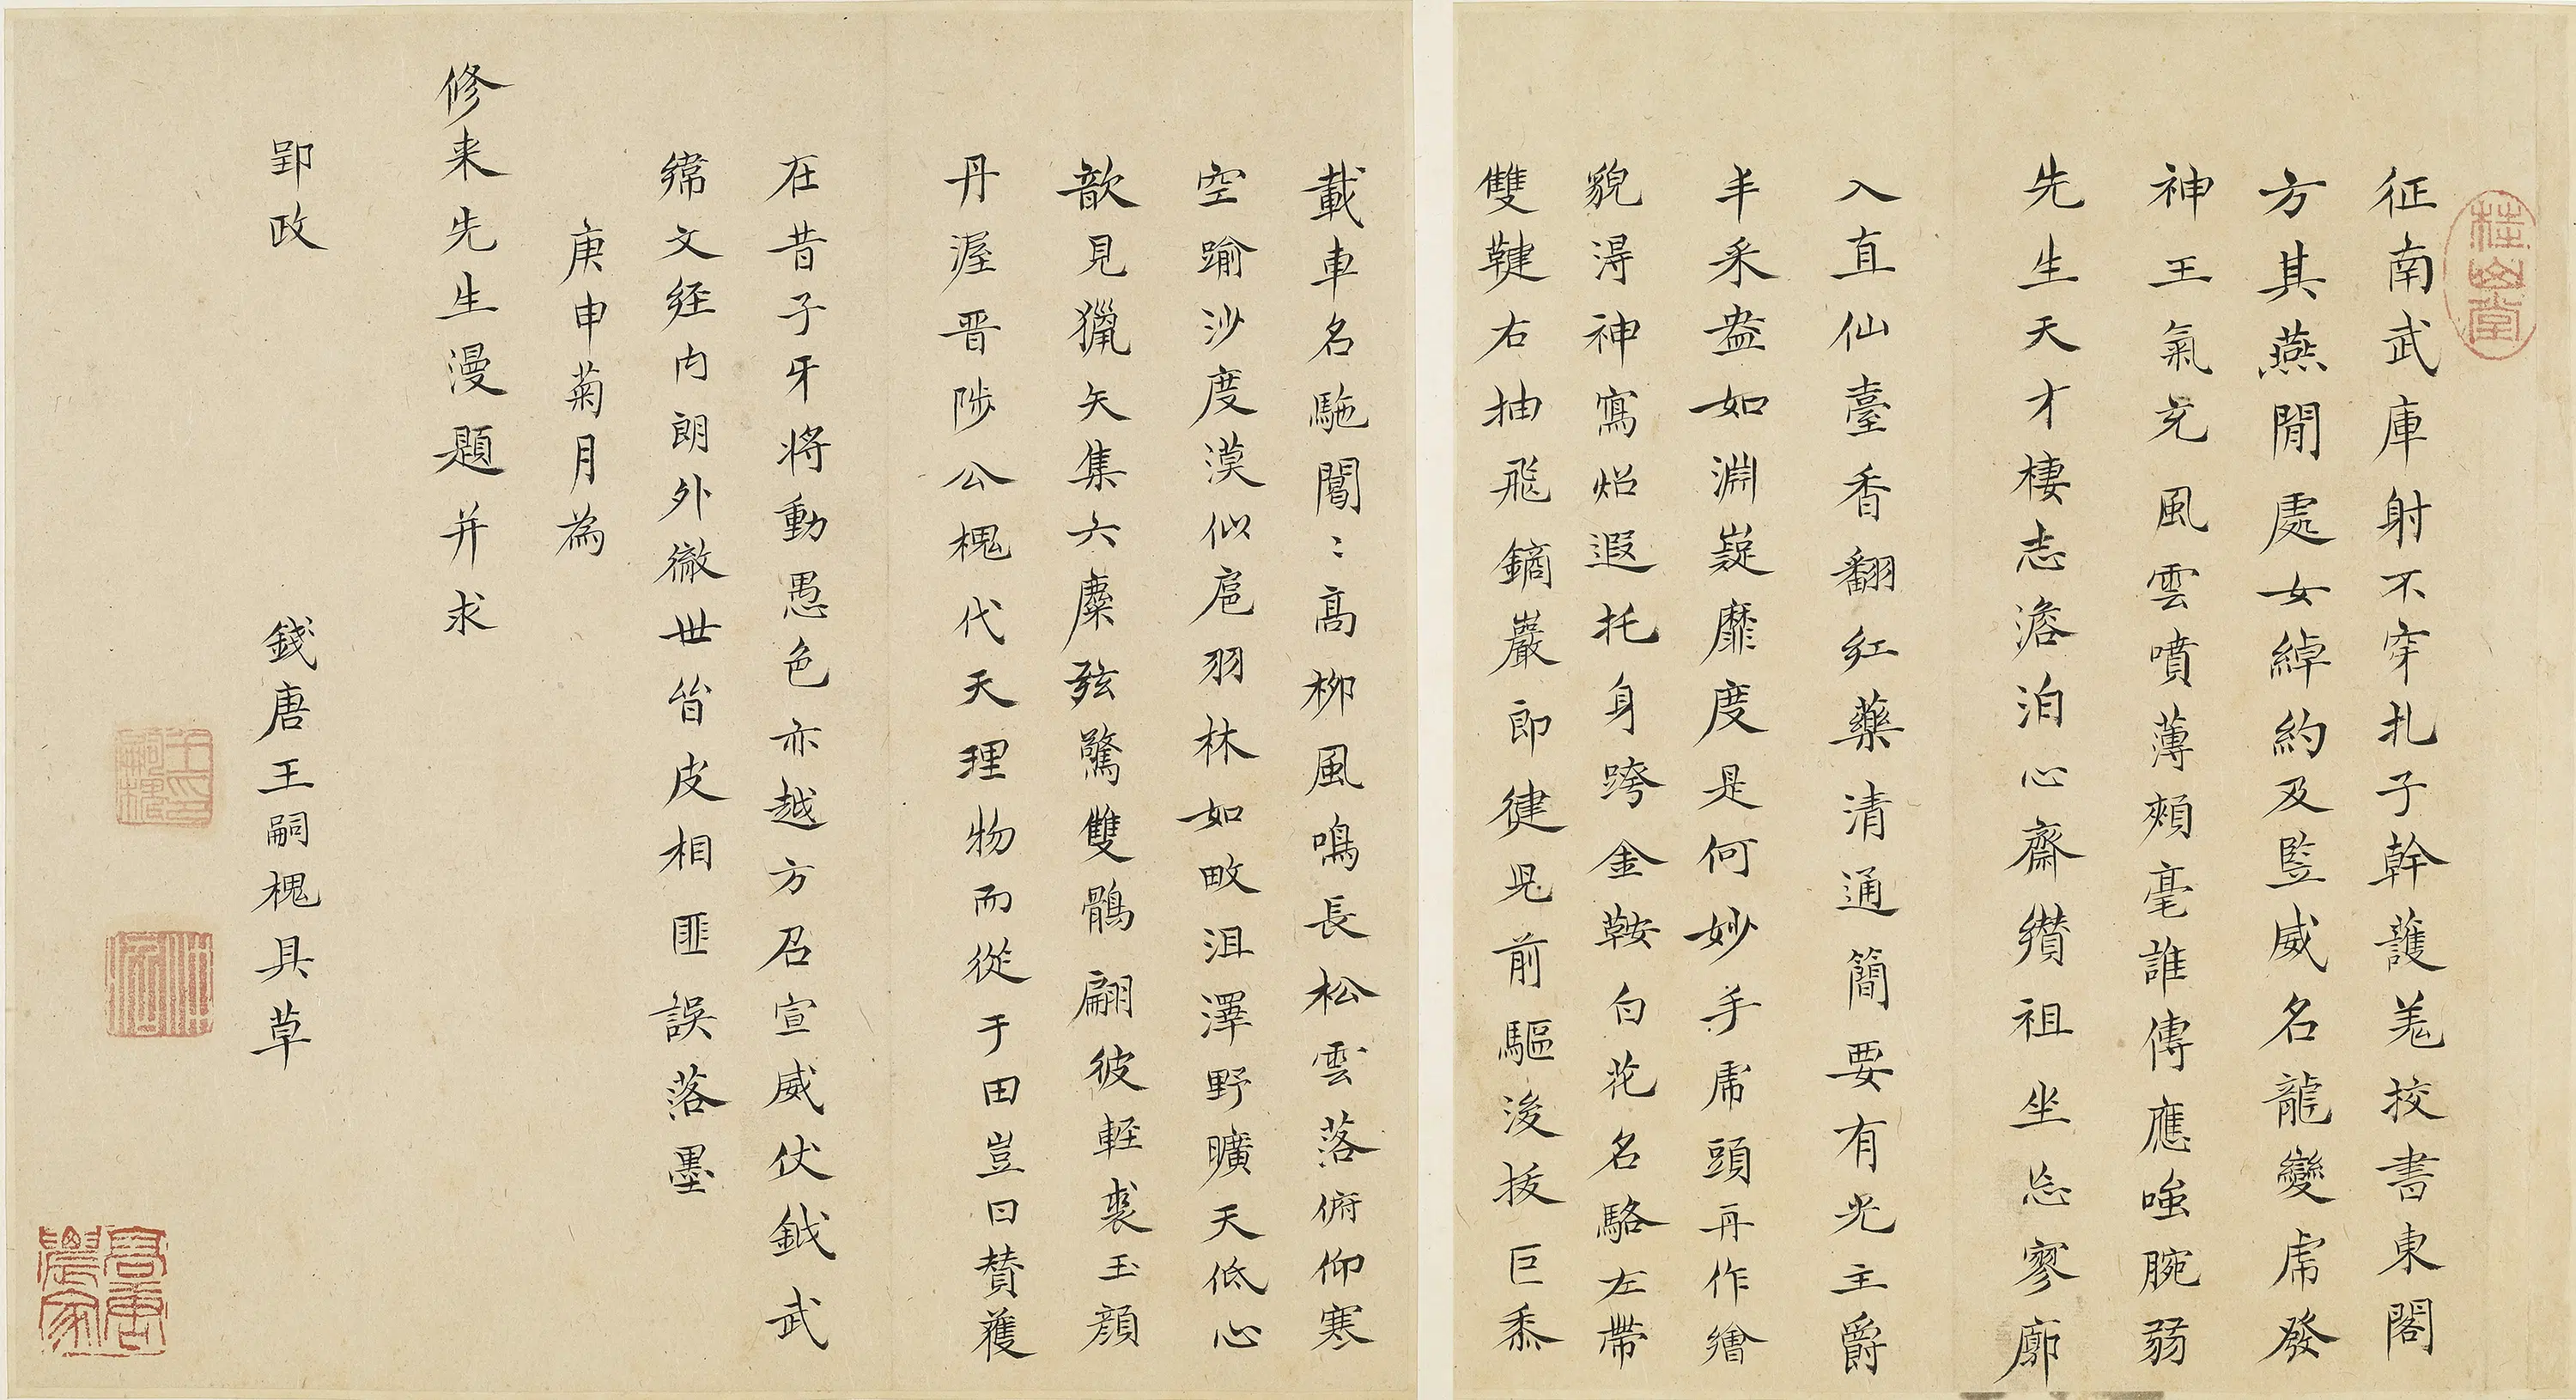 桂山堂
征南武庫射不穿札子幹護羌挍書東閣
方其燕閒處女綽約及監威名龍變虎發
神王氣充風雲噴薄頰毫誰傳應嗤腕弱
先生天才棲志澹泊心齋纘祖坐忘寥廓
入直仙臺香翻紅藥清通簡要有光主爵
丰采盎如淵嶷靡度是何妙手虎頭再作繪
貌淂神寫炤遐托身跨金鞍白花名駱左帶
雙鞬右抽飛鏑巖即徤皃前驅後拔巨黍
載車名駞闐〻高柳風鳴長松雲落俯仰寒
空踰沙度漠似扈羽林如畋沮澤野曠天低心
歊見獵矢集六麋弦驚雙鶻翩彼輕裘玉顏
丹渥晋陟公槐代天理物而從于田豈曰贊蒦
在昔子牙將動愚色亦越方召宣威伏鉞武
緯文經内朗外徹世眥皮相匪誤落墨
庚申菊月為
修来先生漫題并求
郢政
錢唐王嗣槐具草